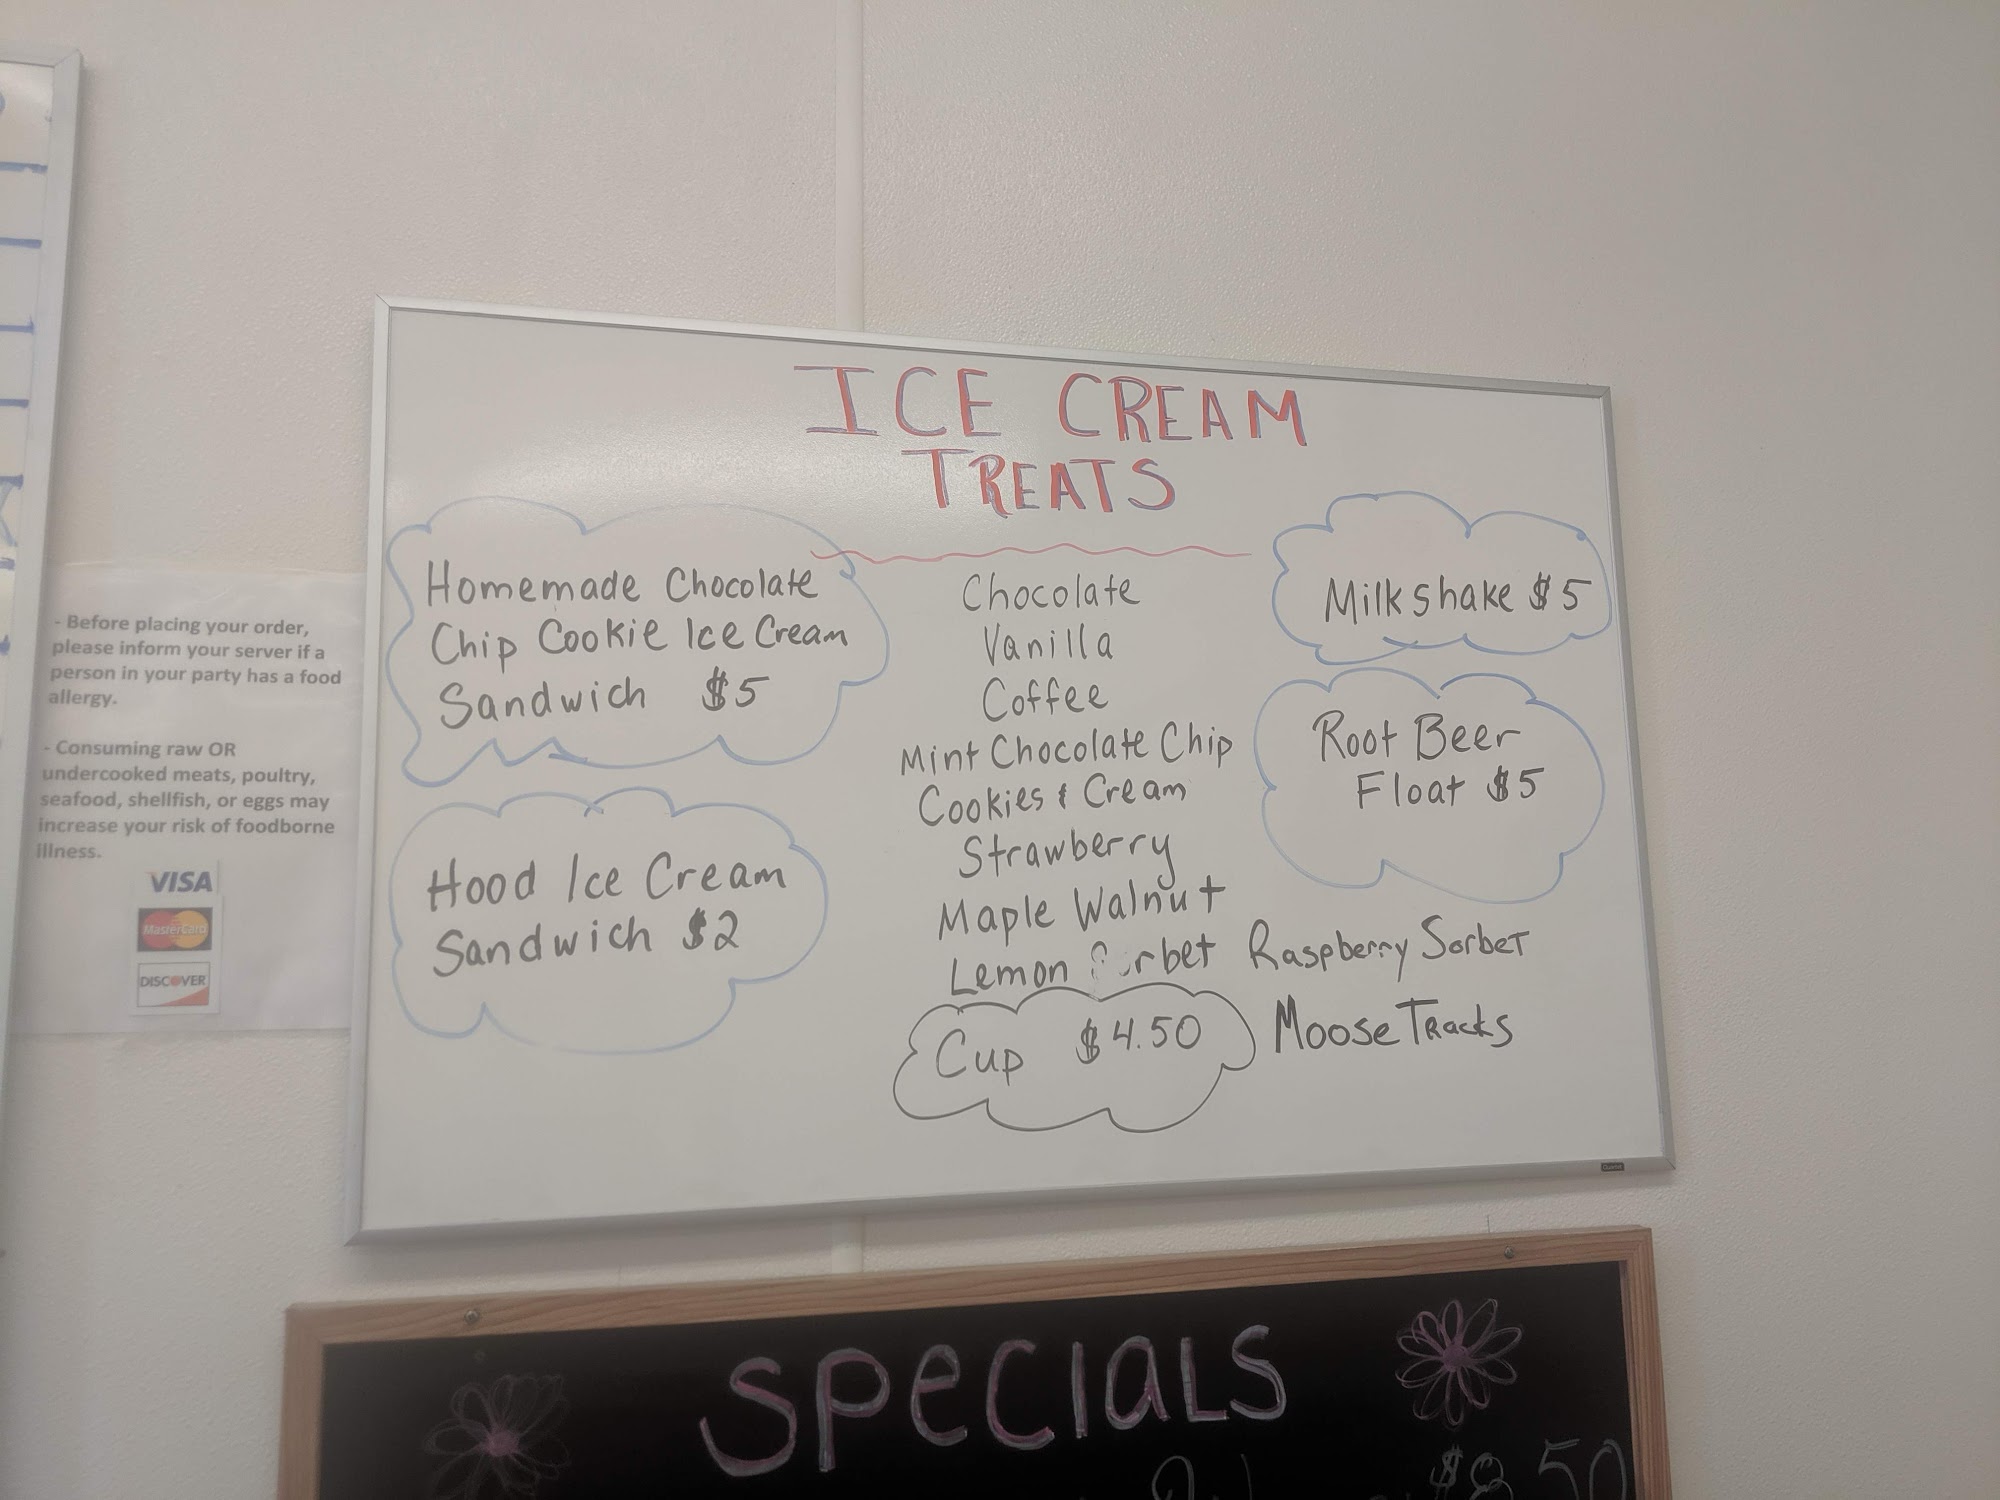 ICE CREAM
TREATS
Homemade Chocolate
Chip Cookie Ice Cream
Sandwich $5
Hood Ice Cream
Sandwich $2
Chocolate
Vanilla
Coffee
Mint Chocolate Chip
Cookies & Cream
Strawberry
Maple Walnut
Lemon Sorbet Raspberry Sorbet
Moose Tracks
Cup $4.50
Milkshake $5
Root Beer
Float $5
- Before placing your order,
please inform your server if a
person in your party has a food
allergy.
- Consuming raw OR
undercooked meats, poultry,
seafood, shellfish, or eggs may
increase your risk of foodborne
illness.
VISA
MasterCard
DISCOVER
SPeCIaLS
$8.50